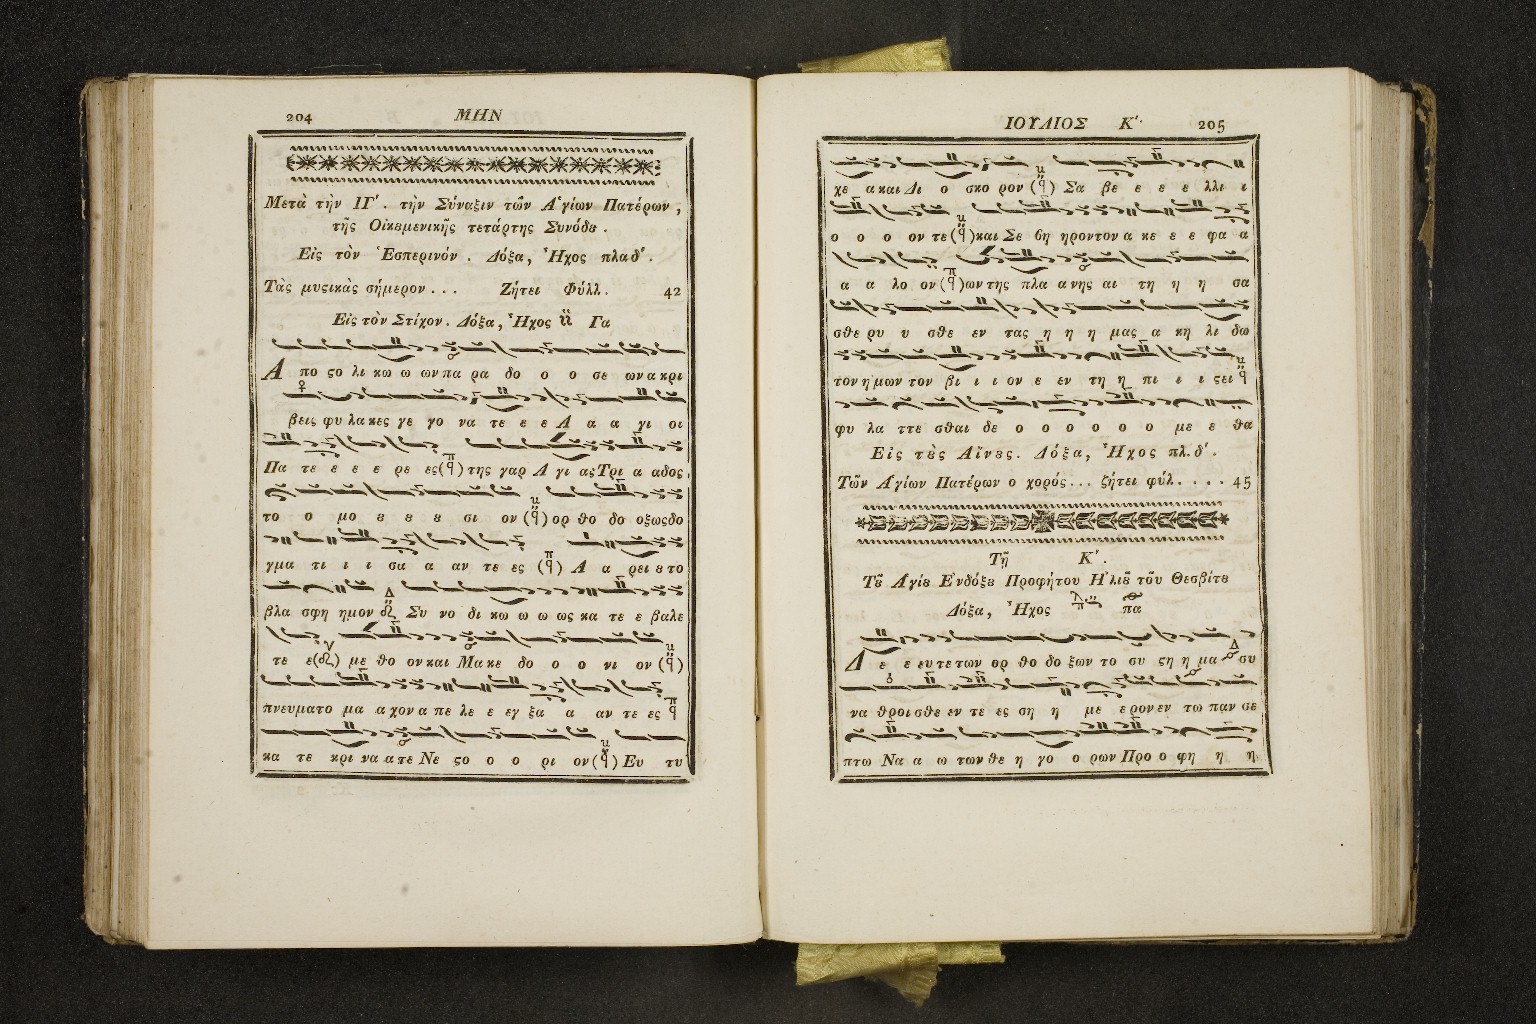 204 ΜΗΝ
Μετὰ τὴν ΙΓ′. τὴν Σύναξιν τῶν Ἁγίων Πατέρων,
τῆς Οἰκȣμενικῆς τετάρτης Συνόδȣ.
Εἰς τὸν Ἑσπερινόν. Δόξα, Ἦχος πλαδ′.
Τὰς μυςικὰς σήμερον... Ζήτει Φύλλ. 42
Εἰς τὸν Στίχον. Δόξα, Ἦχος Γα
Α πο ςο λι κω ω ων πα ρα δο ο ο σε ων α κρι
βεις φυ λα κες γε γο να τε ε ε Α α α γι οι
Πα τε ε ε ε ρε ες (π q) της γαρ Α γι ας Τρι α αδος
το ο μο ȣ ȣ ȣ σι ον (q) ορ θο δο οξως δο
γμα τι ι ι σα α αν τε ες (π q) Α α ρει ȣ το
βλα σφη ημον Δ Συ νο δι κω ω ω ως κα τε ε βαλε
τε ε () με θο ον και Μα κε δο ο ο νι ον (q)
πνευματο μα α χον α πε λε ε εγ ξα α αν τε ες π q
κα τε κρι να α τε Νε ςο ο ο ρι ον (q) Ευ τυ
ΙΟΥΛΙΟΣ Κ′. 205
χε α και Δι ο σκο ρον (q) Σα βε ε ε ε λλι ι
ο ο ο ον τε (q) και Σε βη ηρον τον α κε ε ε φα α
α α λο ον (π q) ων της πλα α νης αι τη η η σα
σθε ρυ υ σθε εν τας η η η μας α κη λι δω
τον ημων τον βι ι ι ον ε εν τη η πι ι ι ςει q
φυ λα ττε σθαι δε ο ο ο ο ο ο με ε θα
Εἰς τȣ̀ς Αἴνȣς. Δόξα, Ἦχος πλ.δ′.
Τῶν Ἁγίων Πατέρων ο χορός... ζήτει φύλ.... 45
Τῇ Κ′.
Τȣ͂ Ἁγίȣ Ἐνδόξȣ Προφήτου Ἠλιȣ͂ τοῦ Θεσβίτȣ
Δόξα, Ἦχος πα
Δ ε ε ευ τε των ορ θο δο ξων το συ ςη η μα συ
να θροι σθε εν τε ες ση η με ε ρον εν τω παν σε
πτω Να α ω των θε η γο ο ρων Προ ο φη η η